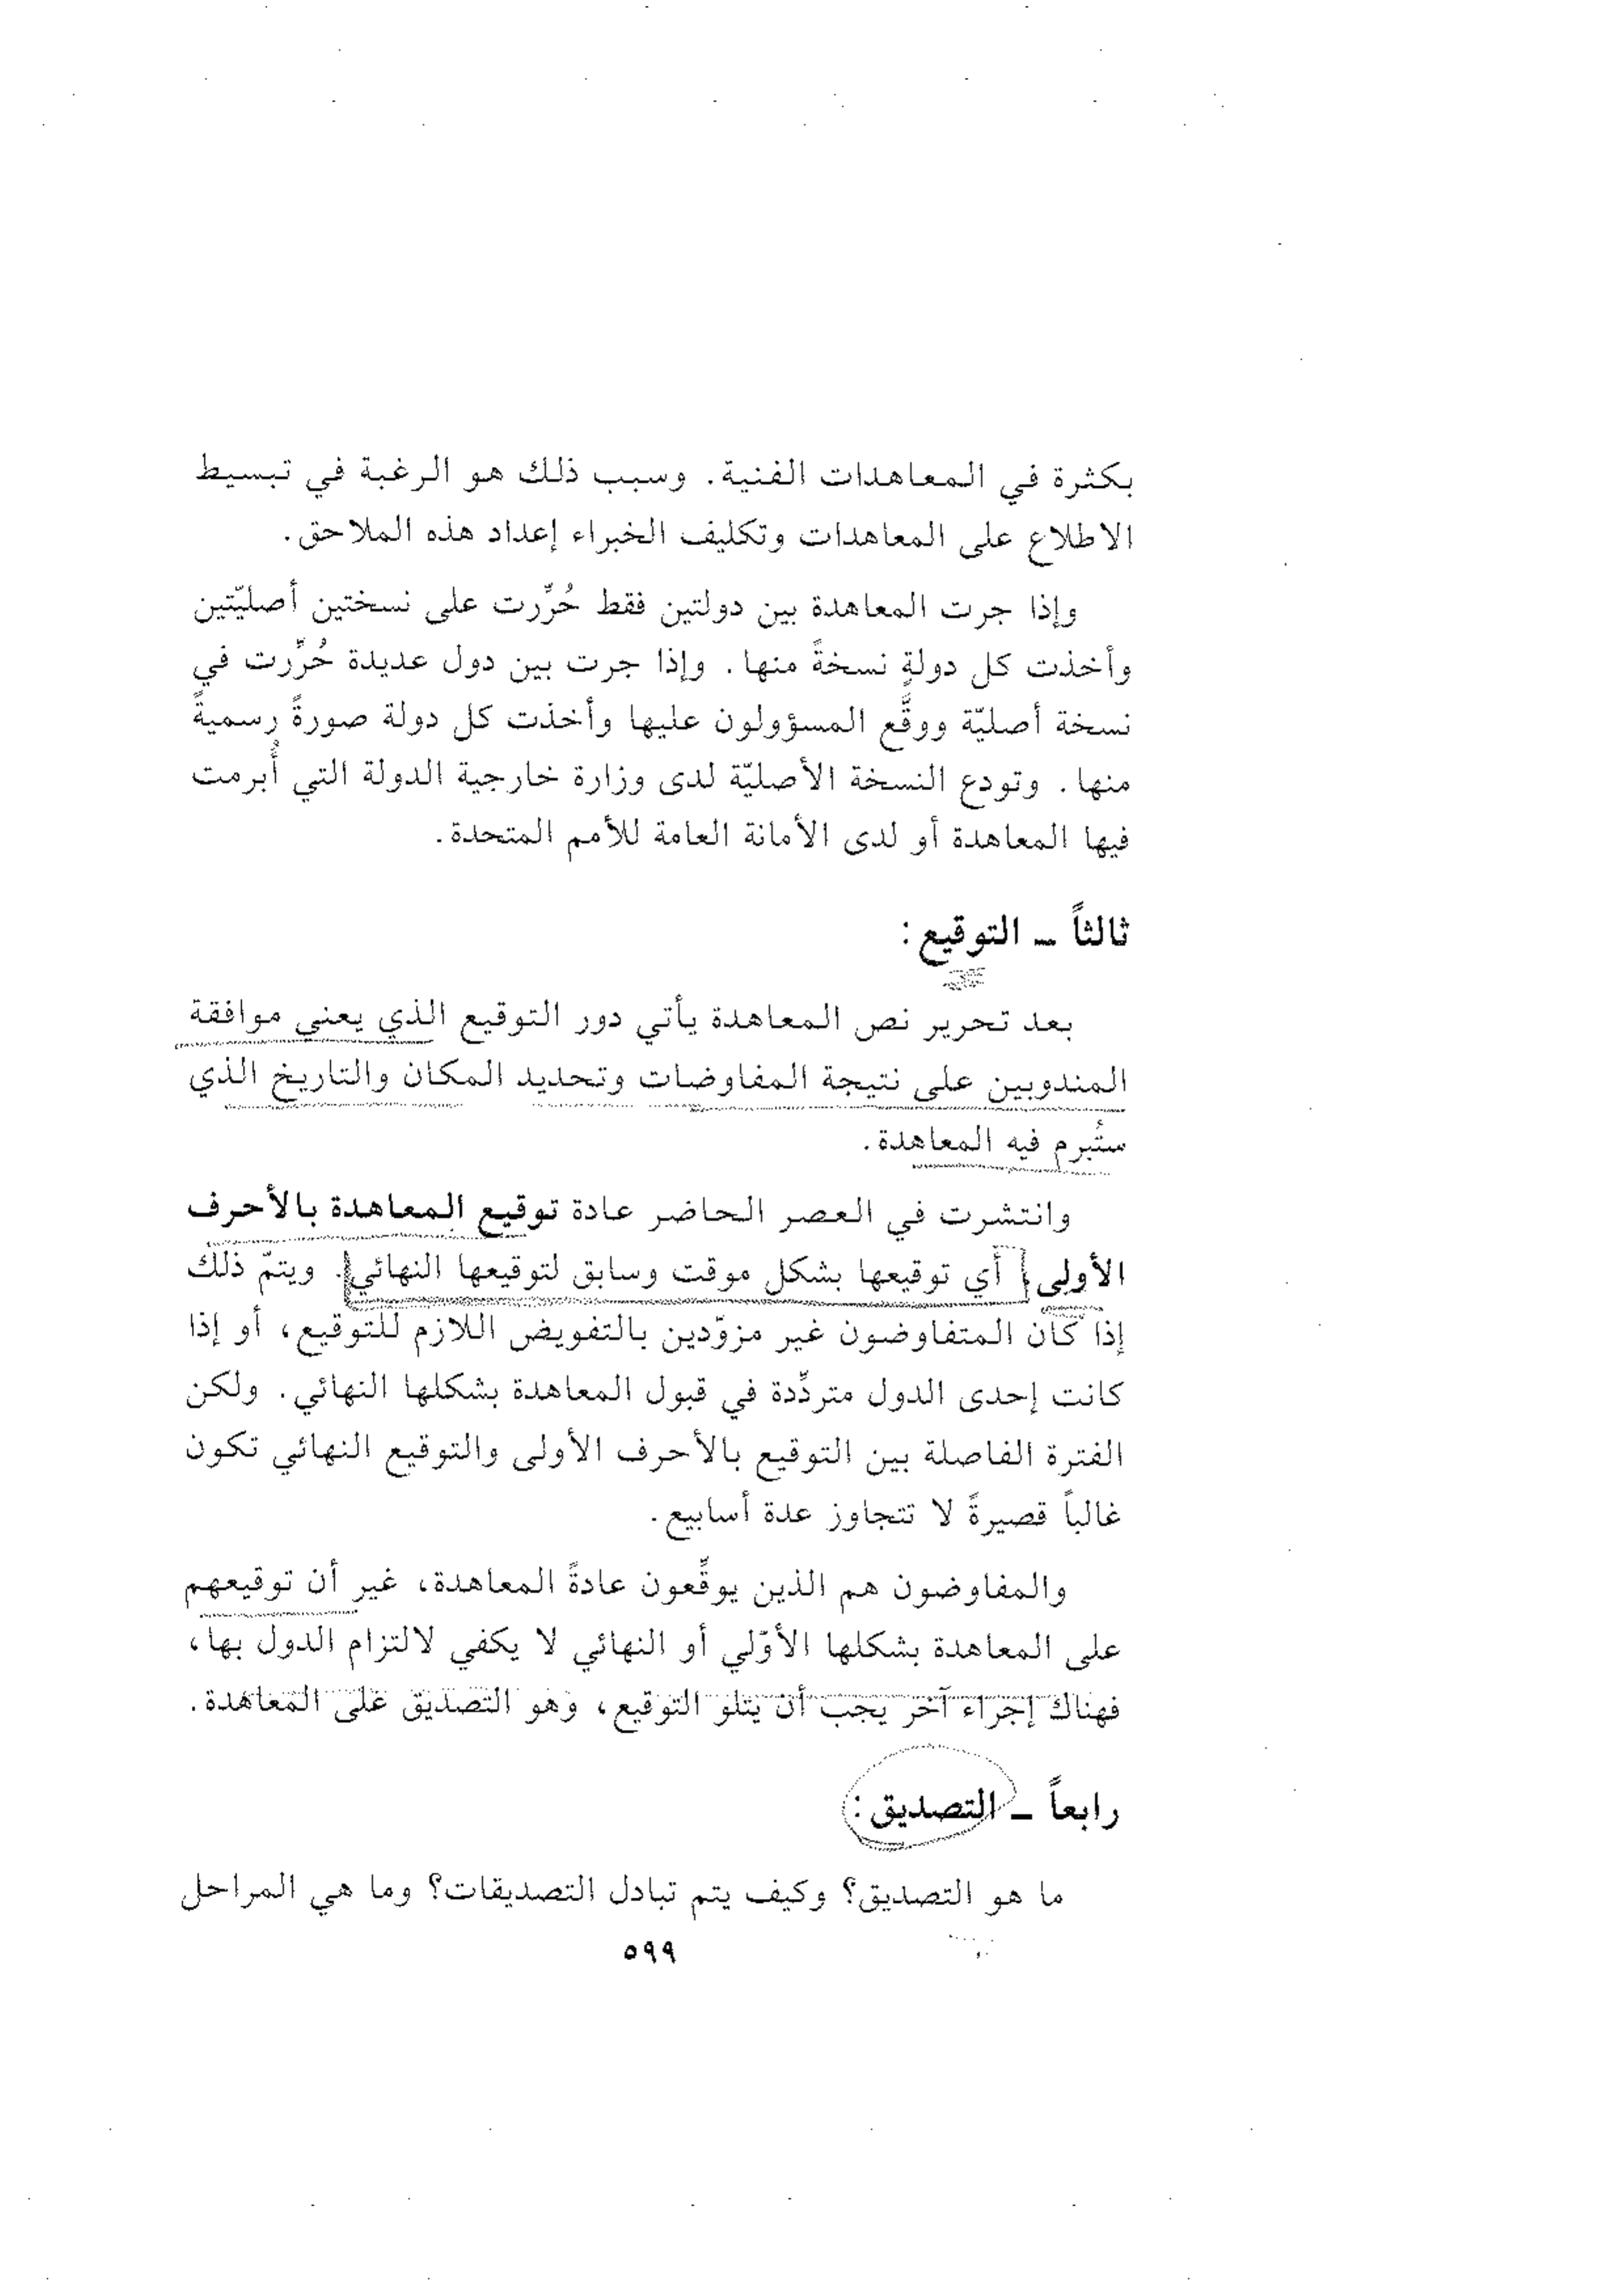 بكثرة في المعاهدات الفنية. وسبب ذلك هو الرغبة في تبسيط
الاطلاع على المعاهدات وتكليف الخبراء إعداد هذه الملاحق.
وإذا جرت المعاهدة بين دولتين فقط حُرِّرت على نسختين أصليّتين
وأخذت كل دولةٍ نسخةً منها. وإذا جرت بين دول عديدة حُرِّرت في
نسخة أصليّة ووقَّع المسؤولون عليها وأخذت كل دولة صورةً رسميةً
منها. وتودع النسخة الأصليّة لدى وزارة خارجية الدولة التي أُبرمت
فيها المعاهدة أو لدى الأمانة العامة للأمم المتحدة.
ثالثاً ــ التوقيع:
بعد تحرير نص المعاهدة يأتي دور التوقيع الذي يعني موافقة
المندوبين على نتيجة المفاوضات وتحديد المكان والتاريخ الذي
ستُبرم فيه المعاهدة.
وانتشرت في العصر الحاضر عادة توقيع المعاهدة بالأحرف
الأولى، أي توقيعها بشكل موقت وسابق لتوقيعها النهائي. ويتمّ ذلك
إذا كان المتفاوضون غير مزوّدين بالتفويض اللازم للتوقيع، أو إذا
كانت إحدى الدول متردِّدة في قبول المعاهدة بشكلها النهائي. ولكن
الفترة الفاصلة بين التوقيع بالأحرف الأولى والتوقيع النهائي تكون
غالباً قصيرةً لا تتجاوز عدة أسابيع.
والمفاوضون هم الذين يوقِّعون عادةً المعاهدة، غير أن توقيعهم
على المعاهدة بشكلها الأوّلي أو النهائي لا يكفي لالتزام الدول بها،
فهناك إجراء آخر يجب أن يتلو التوقيع، وهو التصديق على المعاهدة.
رابعاً ــ التصديق:
ما هو التصديق؟ وكيف يتم تبادل التصديقات؟ وما هي المراحل
٥٩٩